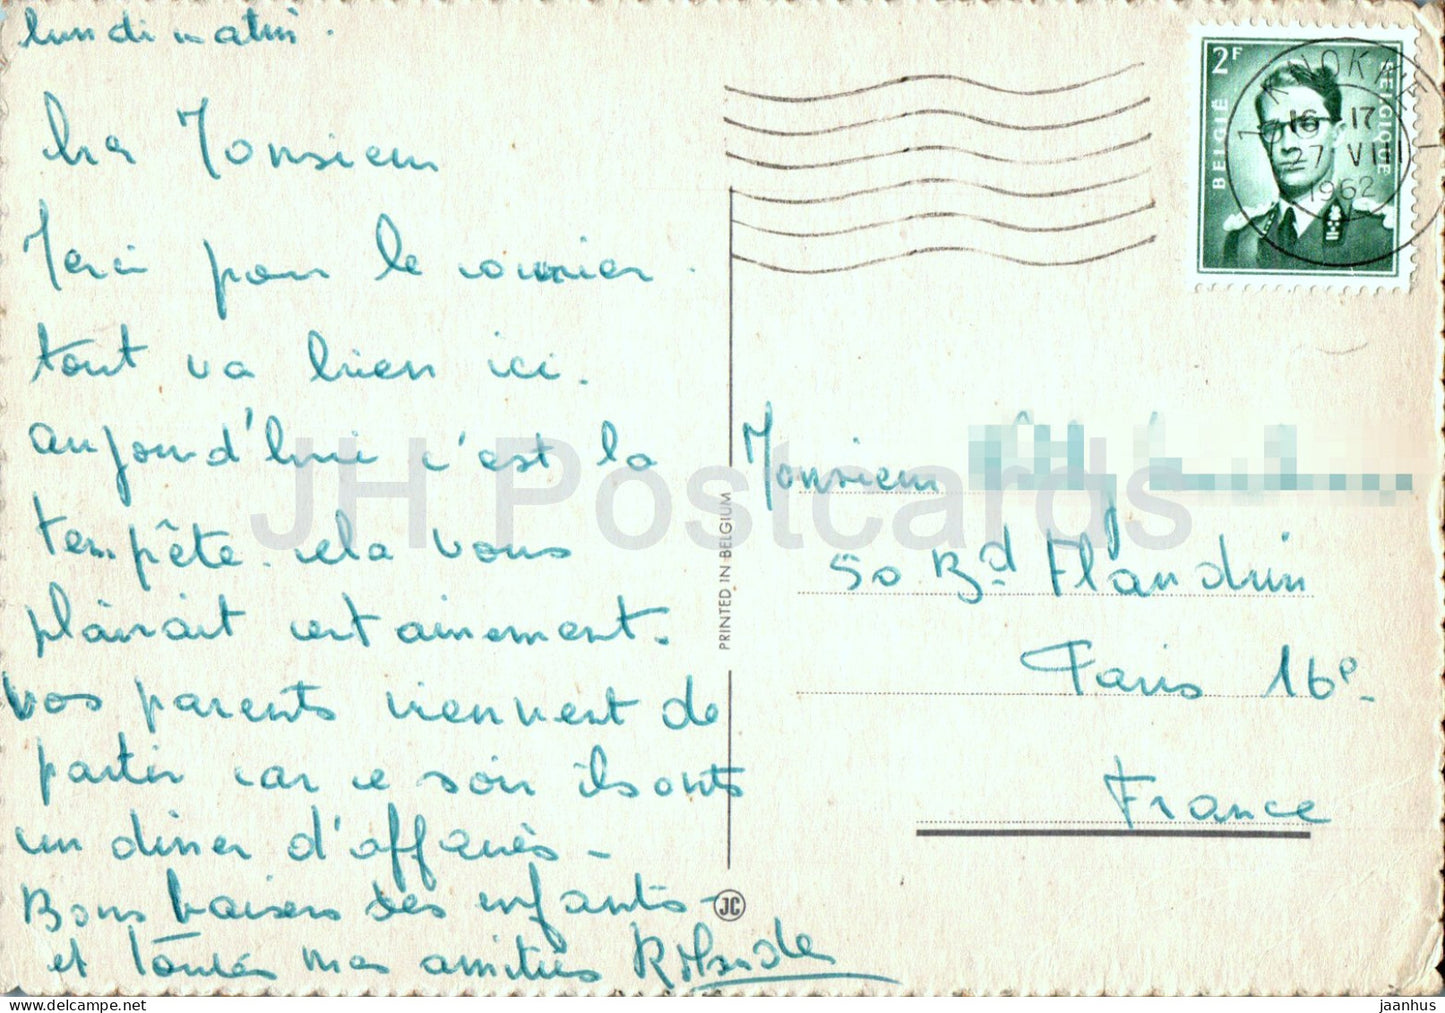 lundi matin.
Monsieur
Merci pour le courrier.
tout va bien ici.
aujourd'hui c'est la
tempête. cela vous
plairait certainement.
vos parents viennent de
partir car ce soir ils ont
un diner d'affaires -
Bons baisers des enfants -
et toutes mes amitiés
2F
BELGIË
BELGIQUE
1 KNOKKE 1
16-17
27 VIII
1962
Monsieur
50 Bd Flandrin
Paris 16e -
France
PRINTED IN BELGIUM
JC
JH Postcards
jaanhus.com
jaanhus